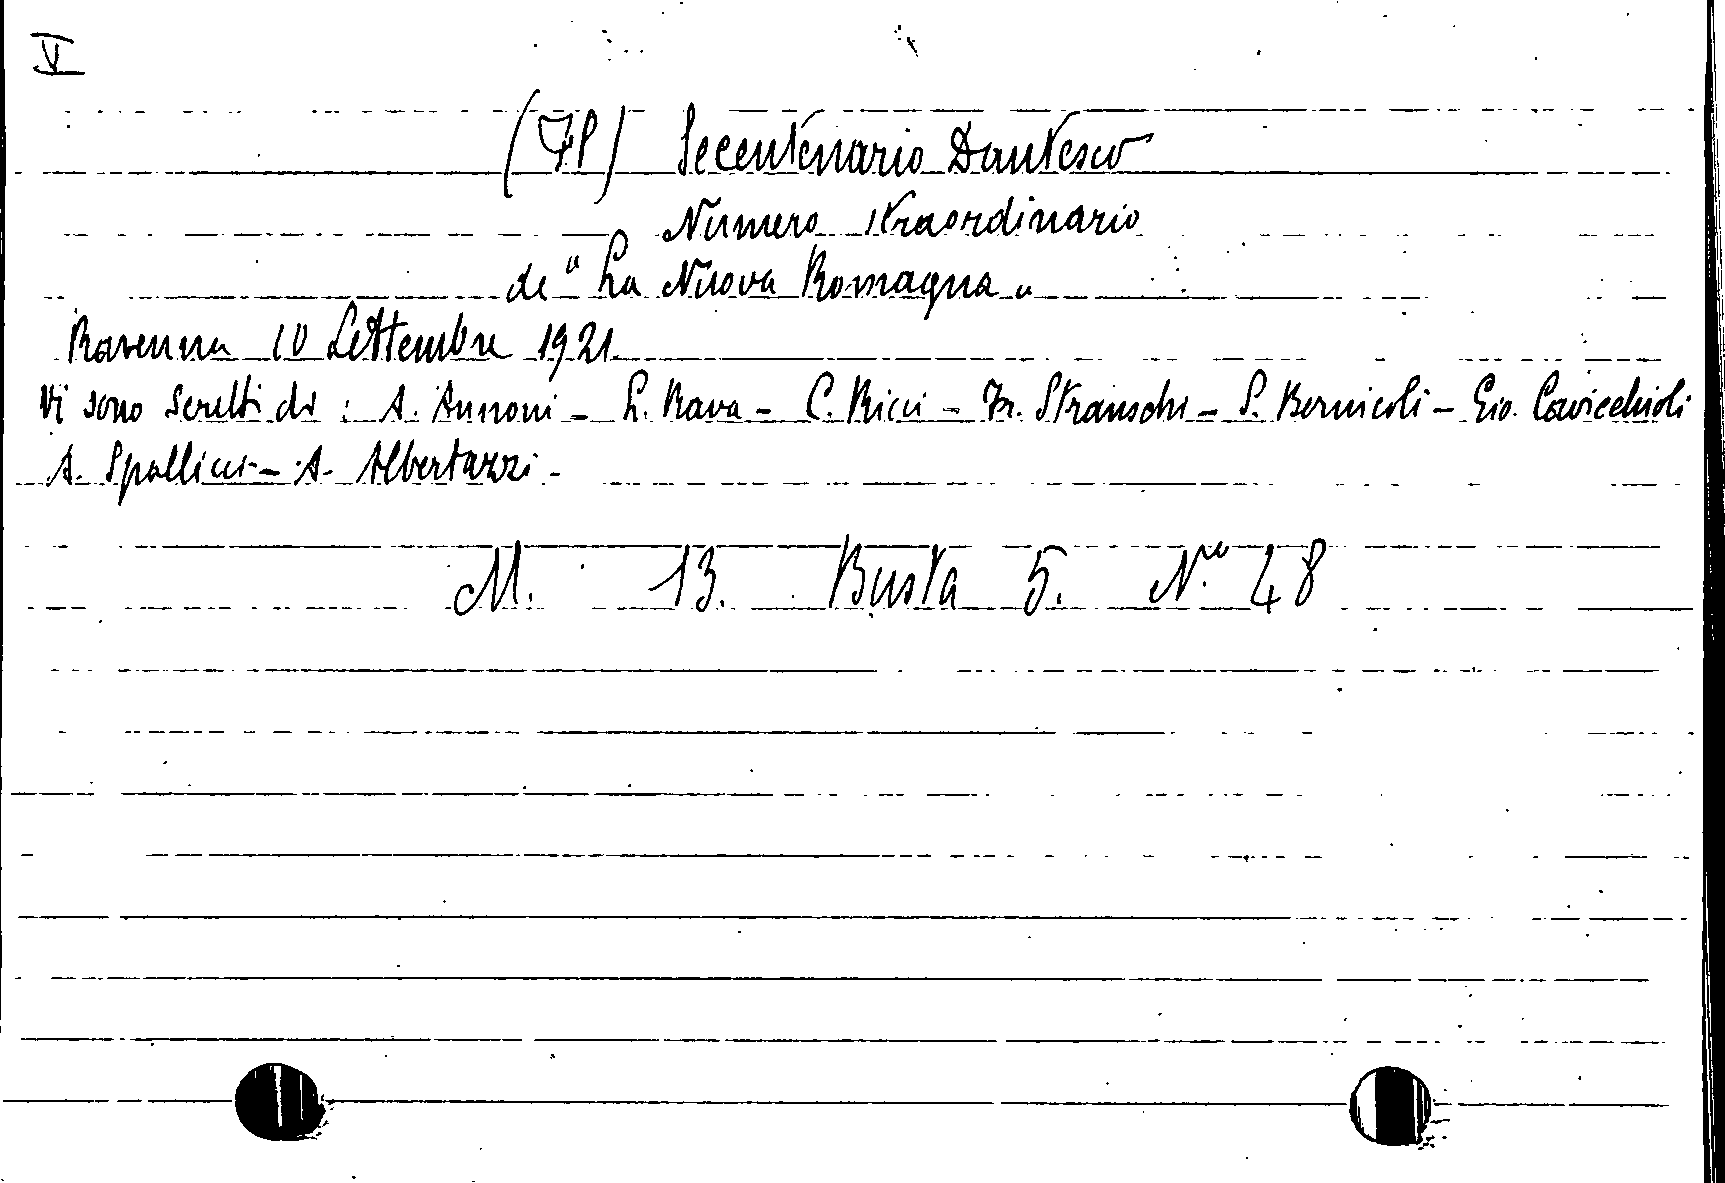 V
Secentenario Dantesco
Numero straordinario
de "La Nuova Romagna"
Ravenna 10 Settembre 1921
Vi sono scritti di: A. Annoni - L. Rava - C. Ricci - Fr. Stranschi - S. Bernicoli - Gio. Cavicchioli
A. Spallicci - A. Albertazzi -
M. 13. Busta 5. N.° 48